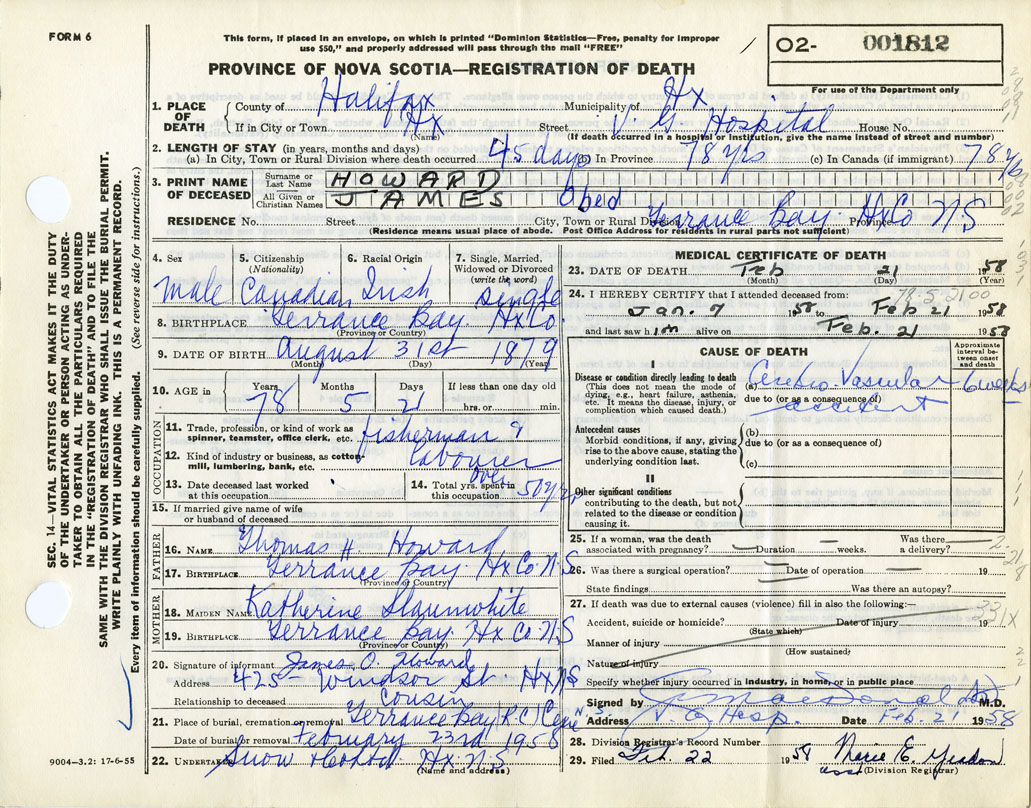 FORM 6
This form, if placed in an envelope, on which is printed "Dominion Statistics—Free, penalty for improper
use $50," and properly addressed will pass through the mail "FREE"
/ 02- 001812
For use of the Department only
PROVINCE OF NOVA SCOTIA—REGISTRATION OF DEATH
1. PLACE OF DEATH { County of Halifax Municipality of Hx
If in City or Town Hx (Name) Street V. G. Hospital House No.
(If death occurred in a hospital or institution, give the name instead of street and number)
2. LENGTH OF STAY (in years, months and days)
(a) In City, Town or Rural Division where death occurred 45 days (b) In Province 78 yrs (c) In Canada (if immigrant) 78 yrs
3. PRINT NAME OF DECEASED { Surname or Last Name HOWARD
All Given or Christian Names JAMES Obed
RESIDENCE No. Street City, Town or Rural Div Terrance Bay Province HxCo N.S
(Residence means usual place of abode. Post Office Address for residents in rural parts not sufficient)
4. Sex 5. Citizenship (Nationality) 6. Racial Origin 7. Single, Married, Widowed or Divorced (write the word)
Male Canadian Irish Single
8. BIRTHPLACE Terrance Bay HxCo.
(Province or Country)
9. DATE OF BIRTH August 31st 1879
(Month) (Day) (Year)
10. AGE in Years Months Days If less than one day old
78 5 21 hrs. or min.
OCCUPATION
11. Trade, profession, or kind of work as
spinner, teamster, office clerk, etc. fisherman &
12. Kind of industry or business, as cotton-
mill, lumbering, bank, etc. labourer
13. Date deceased last worked
at this occupation
14. Total yrs. spent in
this occupation over 50 yrs
15. If married give name of wife
or husband of deceased
FATHER
16. NAME Thomas H. Howard
17. BIRTHPLACE Terrance Bay Hx Co N.S
(Province or Country)
MOTHER
18. MAIDEN NAME Katherine Slaunwhite
19. BIRTHPLACE Terrance Bay Hx Co N.S
(Province or Country)
20. Signature of informant James O. Howard
Address 425 - Windsor St. Hx N.S
Relationship to deceased Cousin
21. Place of burial, cremation or removal Terrance Bay R.C. Cem N.S.
Date of burial or removal February 23rd 1958
22. UNDERTAKER Snow Hx. N.S
(Name and address)
MEDICAL CERTIFICATE OF DEATH
23. DATE OF DEATH Feb 21 1958
(Month) (Day) (Year)
78-5-21 00
24. I HEREBY CERTIFY that I attended deceased from:
Jan. 7 1958 to Feb 21 1958
and last saw him alive on Feb. 21 1958
CAUSE OF DEATH
Approximate interval between onset and death
I
Disease or condition directly leading to death
(This does not mean the mode of
dying, e.g., heart failure, asthenia,
etc. It means the disease, injury, or
complication which caused death.)
(a) Cerebro-Vascular 6 weeks
due to (or as a consequence of)
accident
Antecedent causes
Morbid conditions, if any, giving
rise to the above cause, stating the
underlying condition last.
(b)
due to (or as a consequence of)
(c)
II
Other significant conditions
contributing to the death, but not
related to the disease or condition
causing it.
25. If a woman, was the death Was there
associated with pregnancy? Duration weeks. a delivery?
26. Was there a surgical operation? Date of operation 19
State findings Was there an autopsy?
27. If death was due to external causes (violence) fill in also the following:— 331X
Accident, suicide or homicide? Date of injury 19
(State which)
Manner of injury
(How sustained)
Nature of injury
Specify whether injury occurred in industry, in home, or in public place
Signed by MacDonald M.D.
Address V. G. Hosp. Date Feb. 21 1958
28. Division Registrar's Record Number
29. Filed Feb. 22 1958 Marie E.
asst (Division Registrar)
9004—3.2: 17-6-55
SEC. 14—VITAL STATISTICS ACT MAKES IT THE DUTY
OF THE UNDERTAKER OR PERSON ACTING AS UNDER-
TAKER TO OBTAIN ALL THE PARTICULARS REQUIRED
IN THE "REGISTRATION OF DEATH" AND TO FILE THE
SAME WITH THE DIVISION REGISTRAR WHO SHALL ISSUE THE BURIAL PERMIT.
WRITE PLAINLY WITH UNFADING INK. THIS IS A PERMANENT RECORD.
Every item of information should be carefully supplied. (See reverse side for instructions.)